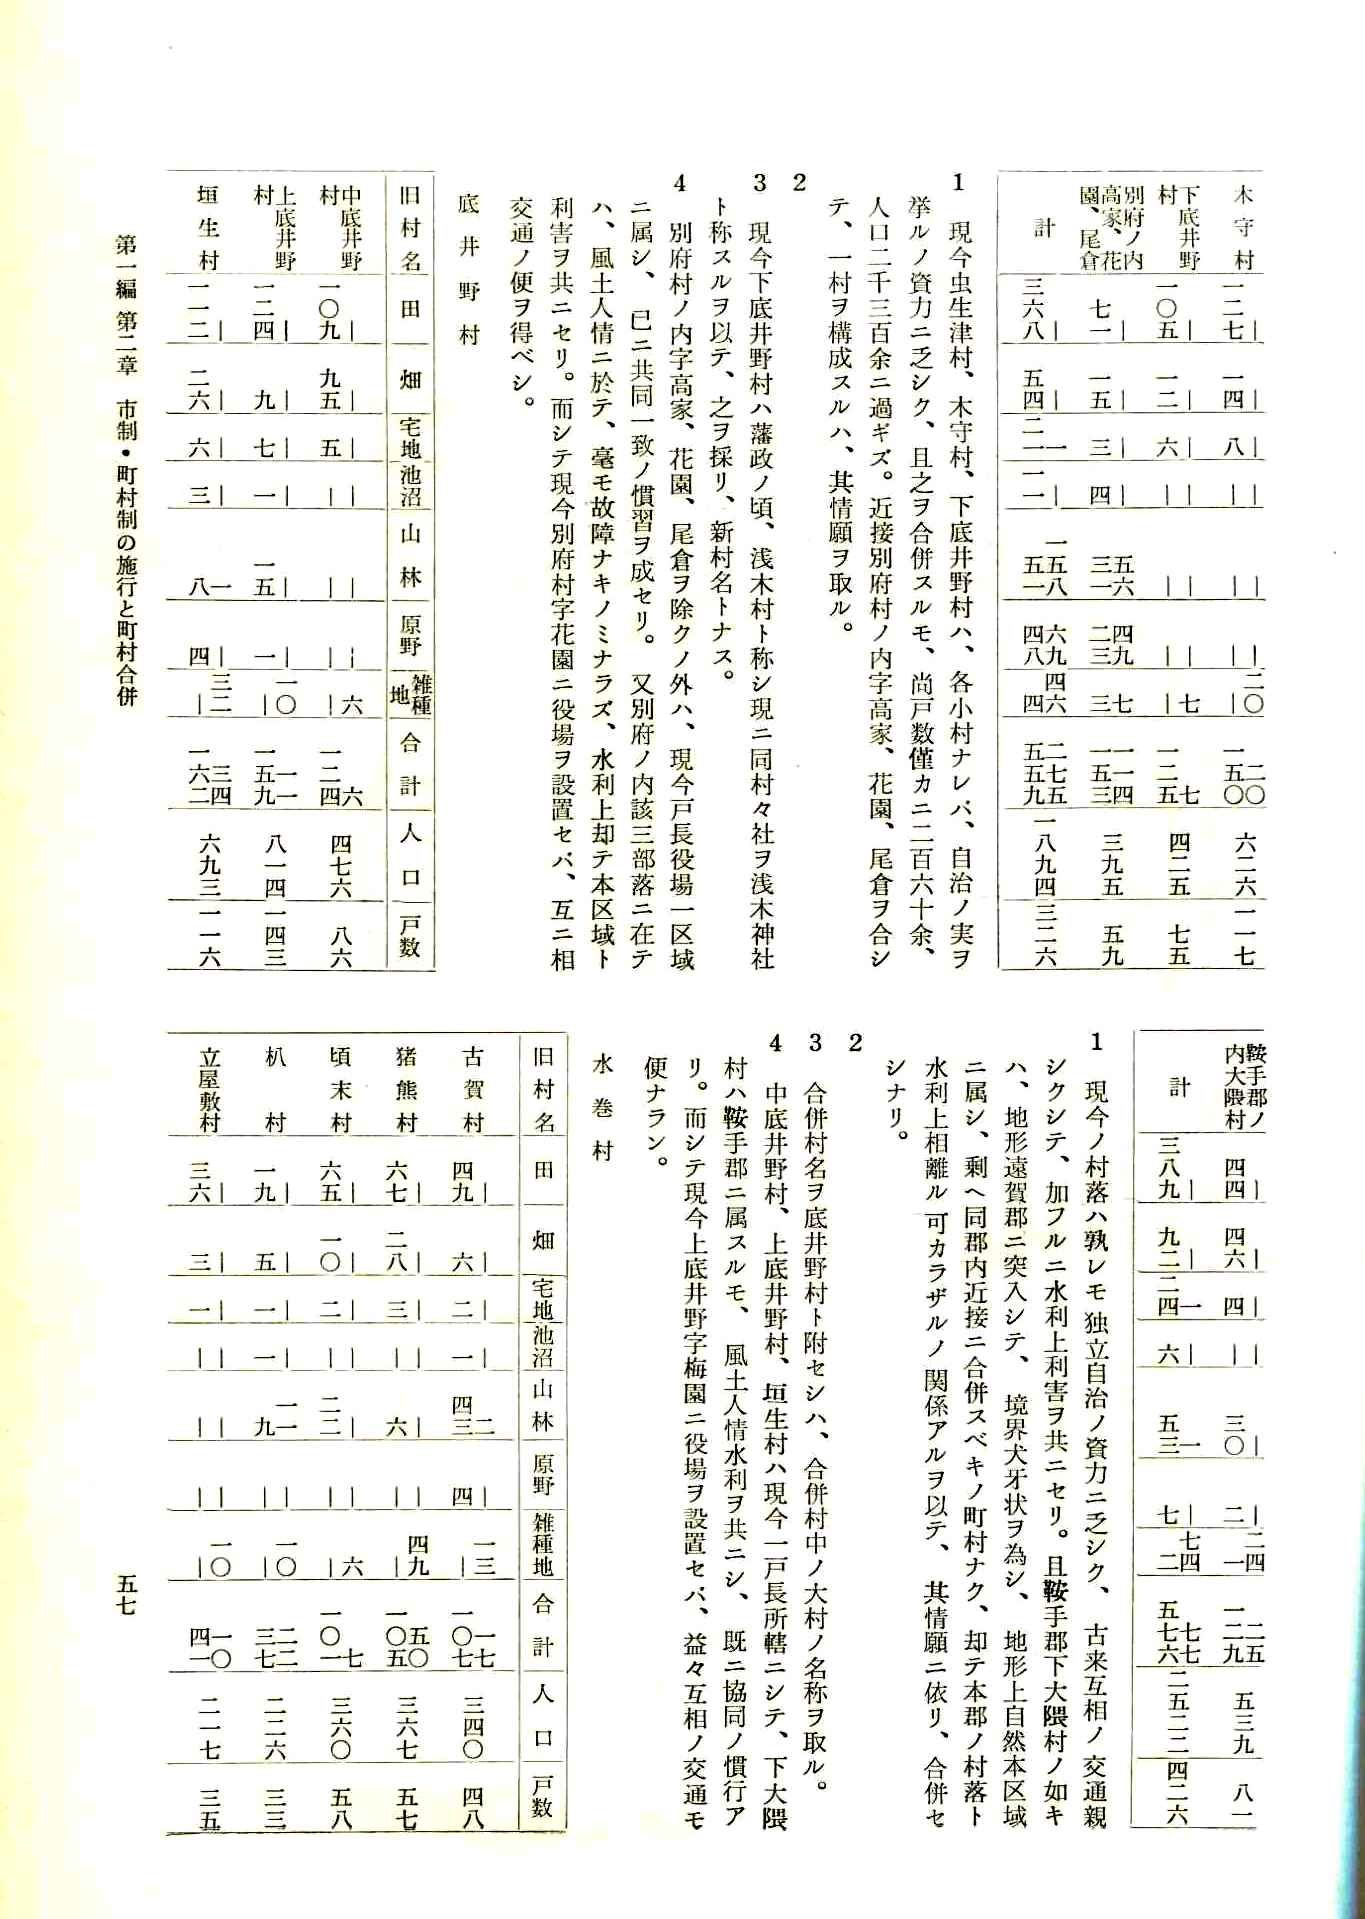 木守村 ｜一二七 ｜一四 ｜八 ｜｜ ｜｜ ｜｜ 二〇｜ 二〇 一五〇 六二六 一一七
下底井野村 ｜一〇五 ｜一二 ｜六 ｜｜ ｜｜ ｜｜ 七｜ 七 一二五 四二五 七五
別府ノ内高家、花園、尾倉 ｜七一 ｜一五 ｜三 ｜四 五六 三一 四九 二三 七 三 一一四 一五三 三九五 五九
計 ｜三六八 ｜五四 一 二一 ｜一一 一五八 五一 六九 四八 四六 四 二七五 五五九 一八九四 三二六
1 現今虫生津村、木守村、下底井野村ハ、各小村ナレバ、自治ノ実ヲ
挙ルノ資力ニ乏シク、且之ヲ合併スルモ、尚戸数僅カニ二百六十余、
人口二千三百余ニ過ギズ。近接別府村ノ内字高家、花園、尾倉ヲ合シ
テ、一村ヲ構成スルハ、其情願ヲ取ル。
2
3 現今下底井野村ハ藩政ノ頃、浅木村ト称シ現ニ同村々社ヲ浅木神社
ト称スルヲ以テ、之ヲ採リ、新村名トナス。
4 別府村ノ内字高家、花園、尾倉ヲ除クノ外ハ、現今戸長役場一区域
ニ属シ、已ニ共同一致ノ慣習ヲ成セリ。又別府ノ内該三部落ニ在テ
ハ、風土人情ニ於テ、毫モ故障ナキノミナラズ、水利上却テ本区域ト
利害ヲ共ニセリ。而シテ現今別府村字花園ニ役場ヲ設置セバ、互ニ相
交通ノ便ヲ得ベシ。
底井野村
旧村名 田 畑 宅地 池沼 山林 原野 雑種地 合計 人口 戸数
中底井野村 ｜一〇九 ｜九五 ｜五 ｜｜ ｜｜ ｜｜ 六｜ 六 一二四 四七六 八六
上底井野村 ｜一二四 ｜九 ｜七 ｜一 ｜一五 ｜一 一〇｜ 一一 一五九 八一四 一四三
垣生村 ｜一一二 ｜二六 ｜六 ｜三 一 八 ｜四 三二｜ 三四 一六二 六九三 一一六
鞍手郡ノ内大隈村 ｜四四 ｜四六 ｜四 ｜｜ ｜三〇 ｜二 二四 一 二五 一二九 五三九 八一
計 ｜三八九 ｜九二 一 二四 ｜六 一 五三 ｜七 七四 二 七七 五七六 二五二二 四二六
1 現今ノ村落ハ孰レモ独立自治ノ資力ニ乏シク、古来互相ノ交通親
シクシテ、加フルニ水利上利害ヲ共ニセリ。且鞍手郡下大隈村ノ如キ
ハ、地形遠賀郡ニ突入シテ、境界犬牙状ヲ為シ、地形上自然本区域
ニ属シ、剰ヘ同郡内近接ニ合併スベキノ町村ナク、却テ本郡ノ村落ト
水利上相離ル可カラザルノ関係アルヲ以テ、其情願ニ依リ、合併セ
シナリ。
2
3 合併村名ヲ底井野村ト附セシハ、合併村中ノ大村ノ名称ヲ取ル。
4 中底井野村、上底井野村、垣生村ハ現今一戸長所轄ニシテ、下大隈
村ハ鞍手郡ニ属スルモ、風土人情水利ヲ共ニシ、既ニ協同ノ慣行ア
リ。而シテ現今上底井野字梅園ニ役場ヲ設置セバ、益々互相ノ交通モ
便ナラン。
水巻村
旧村名 田 畑 宅地 池沼 山林 原野 雑種地 合計 人口 戸数
古賀村 ｜四九 ｜六 ｜二 ｜一 二 四三 ｜四 一三｜ 一七 一〇七 三四〇 四八
猪熊村 ｜六七 ｜二八 ｜三 ｜｜ ｜六 ｜｜ 四九｜ 五〇 一〇五 三六七 五七
頃末村 ｜六五 ｜一〇 ｜二 ｜｜ ｜二二 ｜｜ 六｜ 七 一〇一 三六〇 五八
朳村 ｜一九 ｜五 ｜一 ｜一 一一 九 ｜｜ 一〇｜ 二二 三七 二二六 三三
立屋敷村 ｜三六 ｜三 ｜一 ｜｜ ｜｜ ｜｜ 一〇｜ 一〇 四一 二一七 三五
第一編 第二章 市制・町村制の施行と町村合併
五七